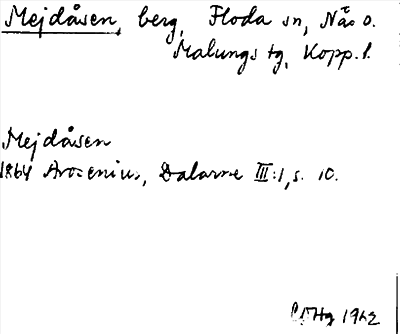 Mejdåsen, berg, Floda sn, Nås o.
Malungs tg, Kopp. l.
Mejdåsen
1864 Arosenius, Dalarne III:1, s. 10.
1962